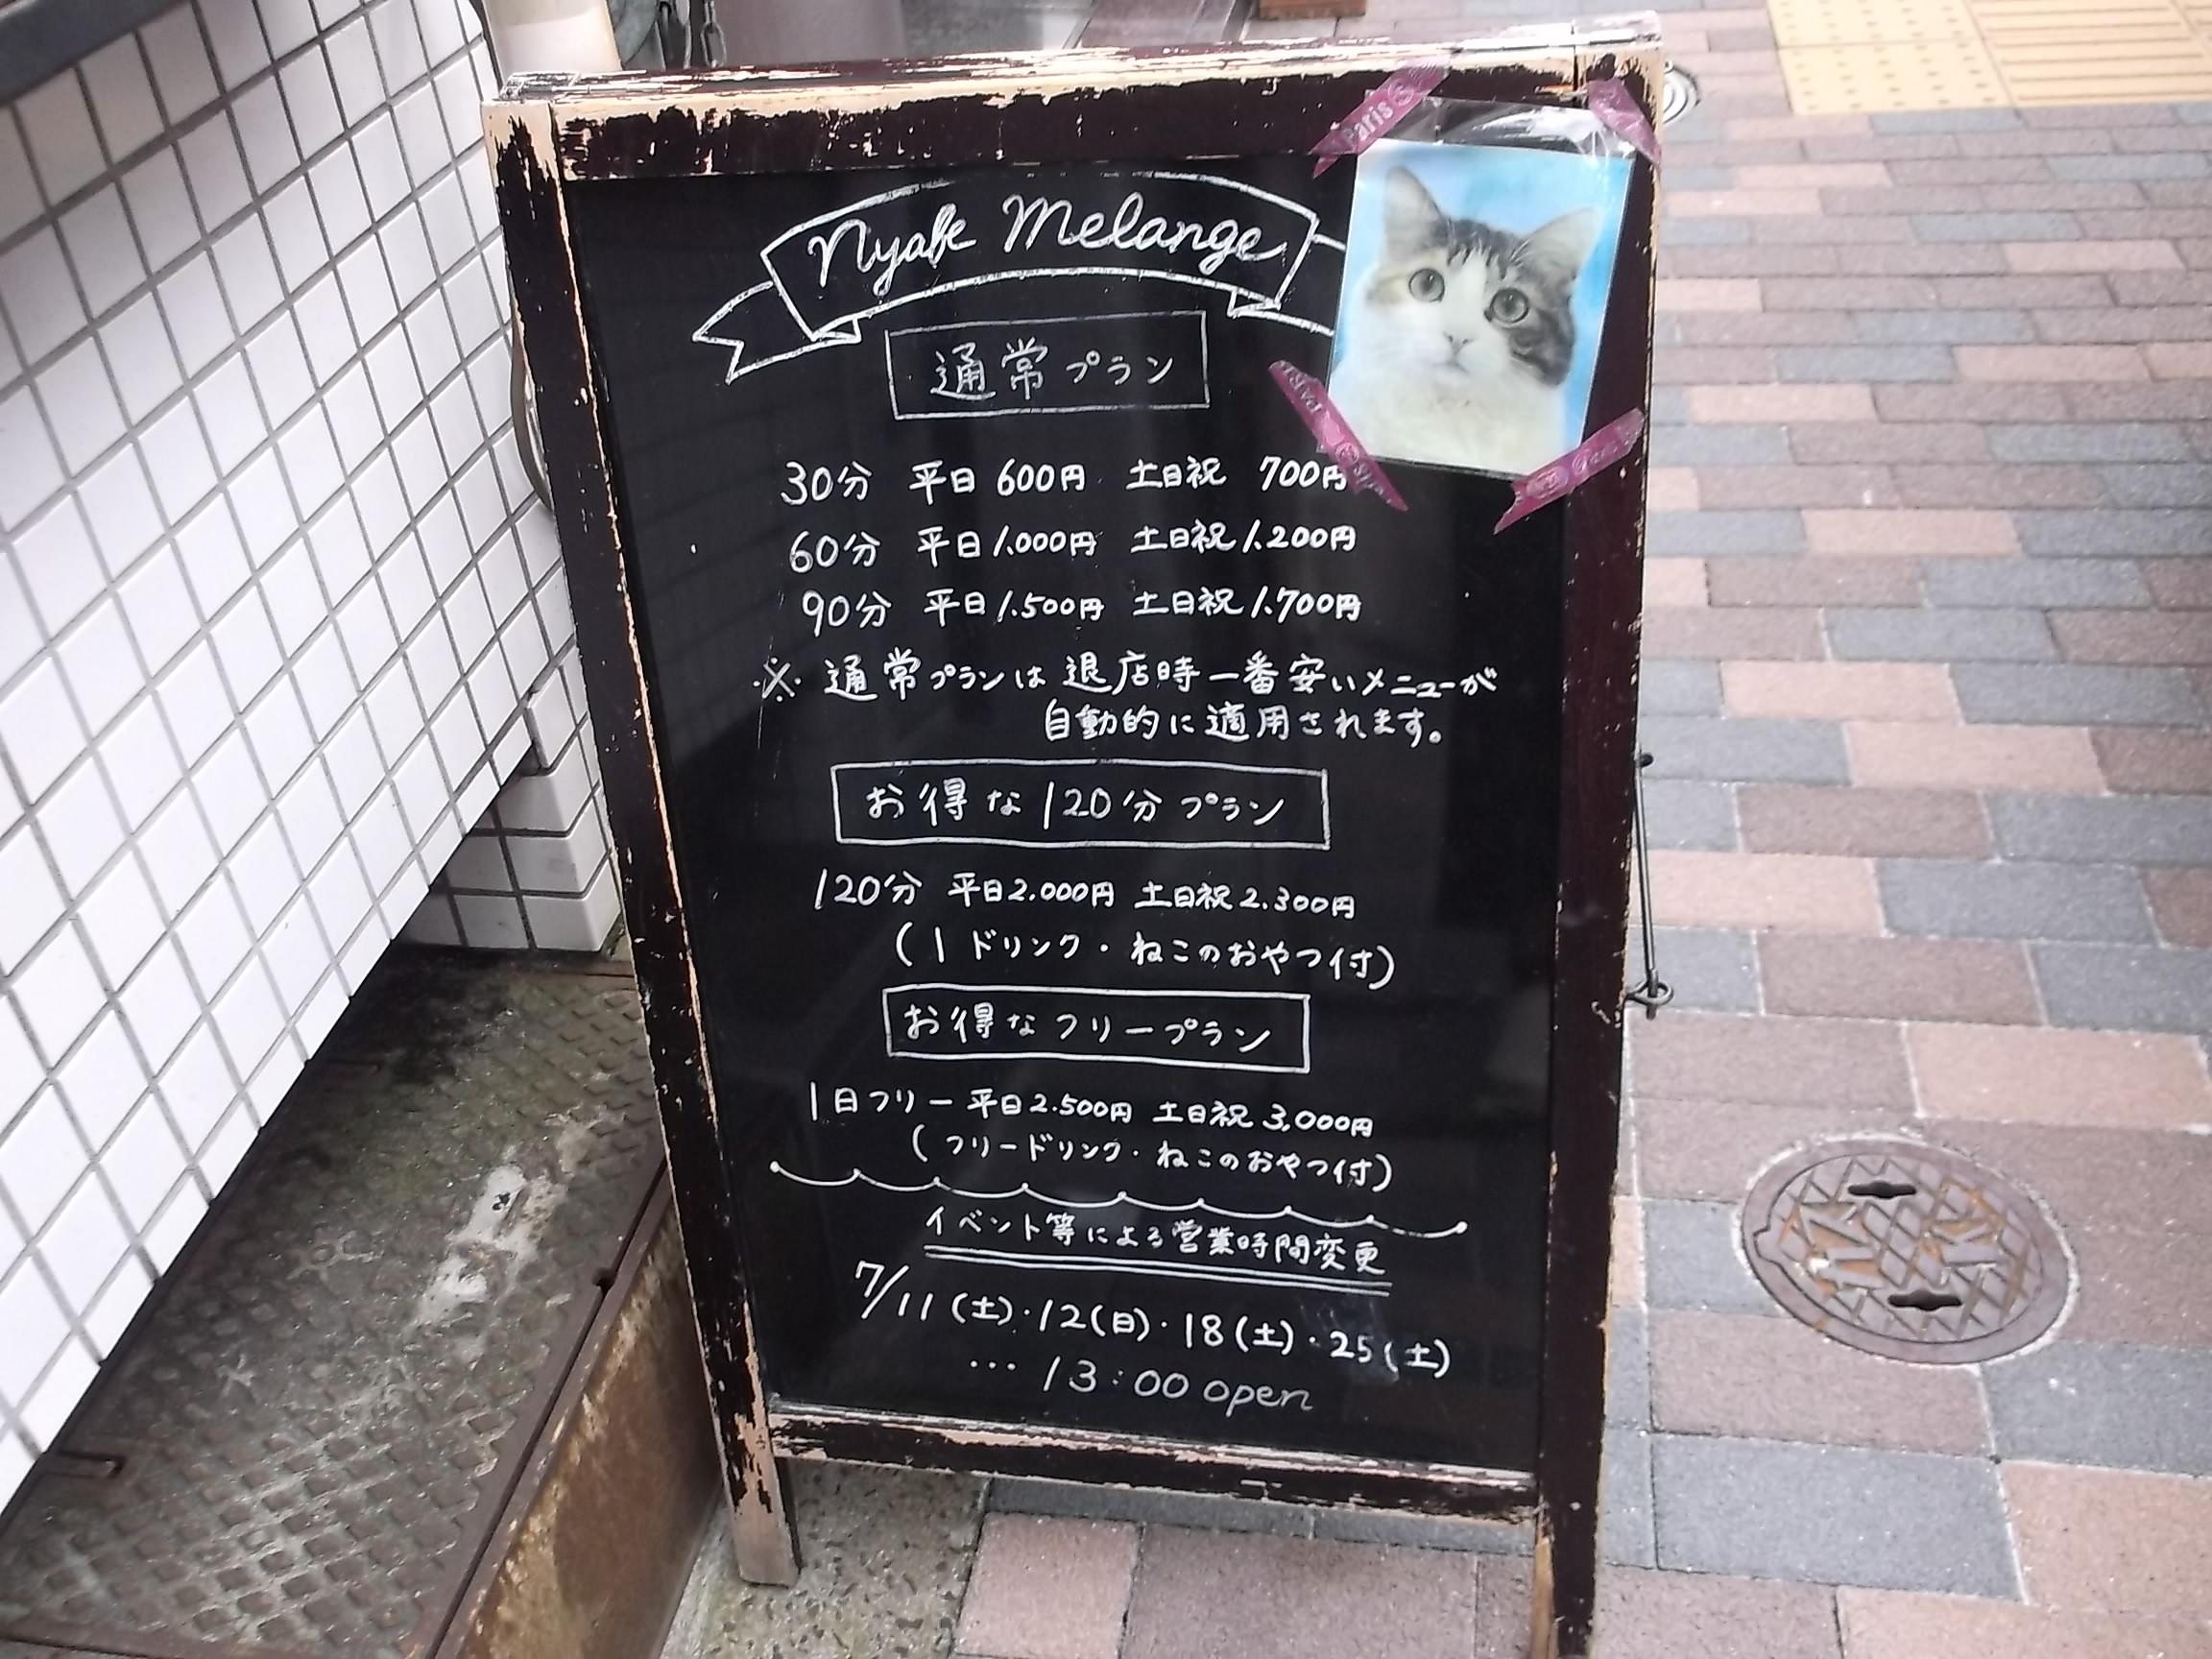 Nyafe Melange
通常プラン
30分 平日 600円 土日祝 700円
60分 平日 1.000円 土日祝 1.200円
90分 平日 1.500円 土日祝 1.700円
※ 通常プランは 退店時一番安いメニューが
自動的に適用されます。
お得な120分プラン
120分 平日2.000円 土日祝2.300円
(1ドリンク・ねこのおやつ付)
お得なフリープラン
1日フリー 平日2.500円 土日祝3,000円
(フリードリンク・ねこのおやつ付)
イベント等による営業時間変更
7/11(土)・12(日)・18(土)・25(土)
… 13:00 open
Paris
PARIS